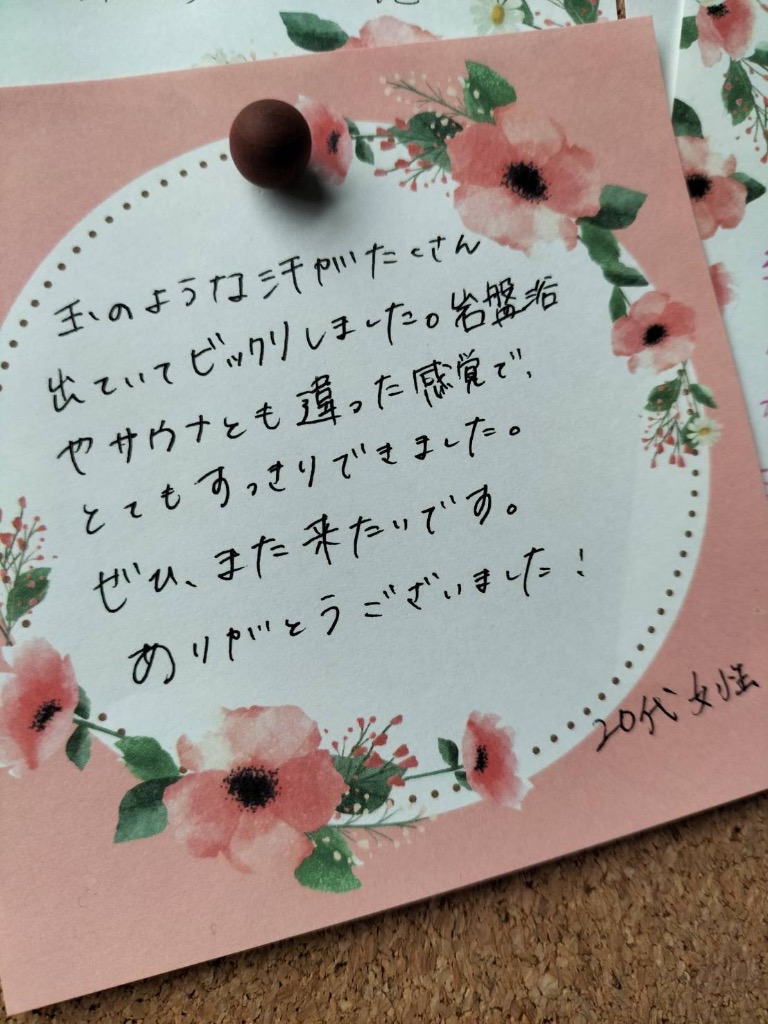 玉のような汗がたくさん
出ていてビックリしました。岩盤浴
やサウナとも違った感覚で、
とてもすっきりできました。
ぜひ、また来たいです。
ありがとうございました！
20代女性